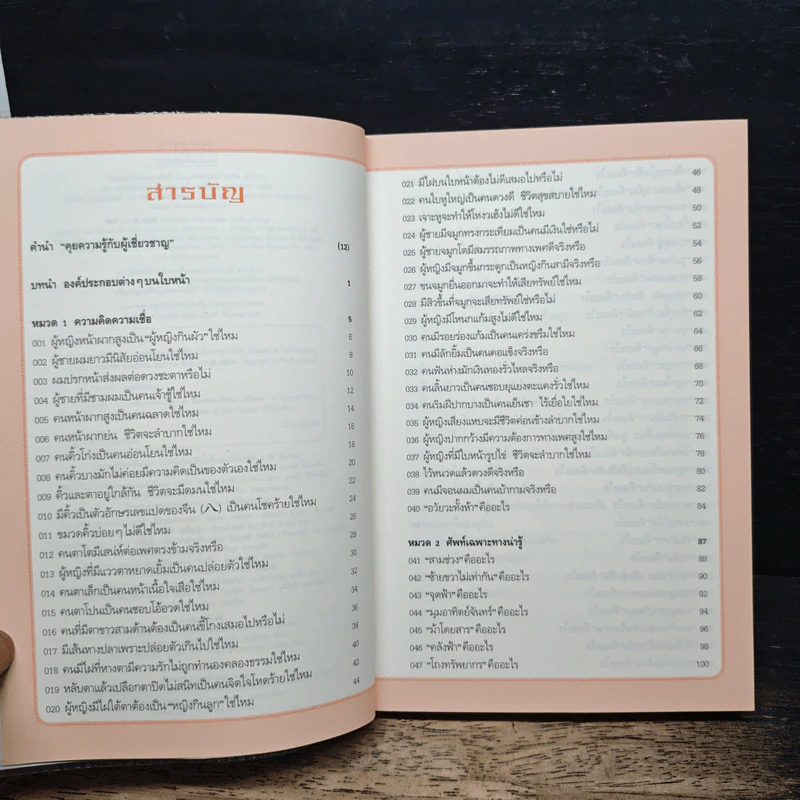 สารบัญ
คำนำ "คุยความรู้กับผู้เชี่ยวชาญ" (12)
บทนำ องค์ประกอบต่างๆบนใบหน้า 1
หมวด 1 ความคิดความเชื่อ 5
001 ผู้หญิงหน้าผากสูงเป็น "ผู้หญิงกินผัว" ใช่ไหม 6
002 ผู้ชายผมยาวมีนิสัยอ่อนโยนใช่ไหม 8
003 ผมปรกหน้าส่งผลต่อดวงชะตาหรือไม่ 10
004 ผู้ชายที่มีชามผมเป็นคนเจ้าชู้ใช่ไหม 12
005 คนหน้าผากสูงเป็นคนฉลาดใช่ไหม 14
006 คนหน้าผากย่น ชีวิตจะลำบากใช่ไหม 16
007 คนคิ้วโก่งเป็นคนอ่อนโยนใช่ไหม 18
008 คนคิ้วบางมักไม่ค่อยมีความคิดเป็นของตัวเองใช่ไหม 20
009 คิ้วและตาอยู่ใกล้กัน ชีวิตจะมืดมนใช่ไหม 22
010 มีคิ้วเป็นตัวอักษรเลขแปดของจีน (八) เป็นคนโชคร้ายใช่ไหม 24
011 ขมวดคิ้วบ่อยๆไม่ดีใช่ไหม 26
012 คนตาโตมีเสน่ห์ต่อเพศตรงข้ามจริงหรือ 28
013 ผู้หญิงที่มีแววตาหยาดเยิ้มเป็นคนปล่อยตัวใช่ไหม 30
014 คนตาเล็กเป็นคนหน้าเนื้อใจเสือใช่ไหม 32
015 คนตาโปนเป็นคนชอบโอ้อวดใช่ไหม 34
016 คนที่มีตาขาวสามด้านต้องเป็นคนขี้โกงเสมอไปหรือไม่ 36
017 มีเส้นหางปลาเพราะปล่อยตัวเกินไปใช่ไหม 38
018 คนมีไฝที่หางตามีความรักไม่ถูกทำนองคลองธรรมใช่ไหม 40
019 หลับตาแล้วเปลือกตาปิดไม่สนิทเป็นคนจิตใจโหดร้ายใช่ไหม 42
020 ผู้หญิงมีไฝใต้ตาต้องเป็น "หญิงกินลูก" ใช่ไหม 44
021 มีไฝบนใบหน้าต้องไม่ดีเสมอไปหรือไม่ 46
022 คนใบหูใหญ่เป็นคนดวงดี ชีวิตสุขสบายใช่ไหม 48
023 เจาะหูจะทำให้โหงวเฮ้งไม่ดีใช่ไหม 50
024 ผู้ชายมีจมูกทรงกระเทียมเป็นคนมีเงินใช่หรือไม่ 52
025 ผู้ชายจมูกโตมีสมรรถภาพทางเพศดีจริงหรือ 54
026 ผู้หญิงมีจมูกขึ้นกระดูกเป็นหญิงกินสามีจริงหรือ 56
027 ขนจมูกยื่นออกมาจะทำให้เสียทรัพย์ใช่ไหม 58
028 มีสิวขึ้นที่จมูกจะเสียทรัพย์ใช่หรือไม่ 60
029 ผู้หญิงมีโหนกแก้มสูงไม่ดีใช่ไหม 62
030 คนมีรอยร่องแก้มเป็นคนเคร่งขรึมใช่ไหม 64
031 คนมีลักยิ้มเป็นคนคอแข็งจริงหรือ 66
032 คนฟันห่างมักเงินทองรั่วไหลจริงหรือ 68
033 คนลิ้นยาวเป็นคนชอบยุแยงตะแคงรั่วใช่ไหม 70
034 คนริมฝีปากบางเป็นคนเย็นชา ไร้เยื่อใยใช่ไหม 72
035 ผู้หญิงเสียงแหบจะมีชีวิตค่อนข้างลำบากใช่ไหม 74
036 ผู้หญิงปากกว้างมีความต้องการทางเพศสูงใช่ไหม 76
037 ผู้หญิงที่มีใบหน้ารูปไข่ ชีวิตจะลำบากใช่ไหม 78
038 ไว้หนวดแล้วดวงดีจริงหรือ 80
039 คนมีจอนผมเป็นคนบ้ากามจริงหรือ 82
040 "อวัยวะทั้งห้า" คืออะไร 84
หมวด 2 ศัพท์เฉพาะทางน่ารู้ 87
041 "สามช่วง" คืออะไร 88
042 "ซ้ายขวาไม่เท่ากัน" คืออะไร 90
043 "จุดฟ้า" คืออะไร 92
044 "มุมอาทิตย์จันทร์" คืออะไร 94
045 "ม้าโดยสาร" คืออะไร 96
046 "คลังฟ้า" คืออะไร 98
047 "โถงทรัพยากร" คืออะไร 100